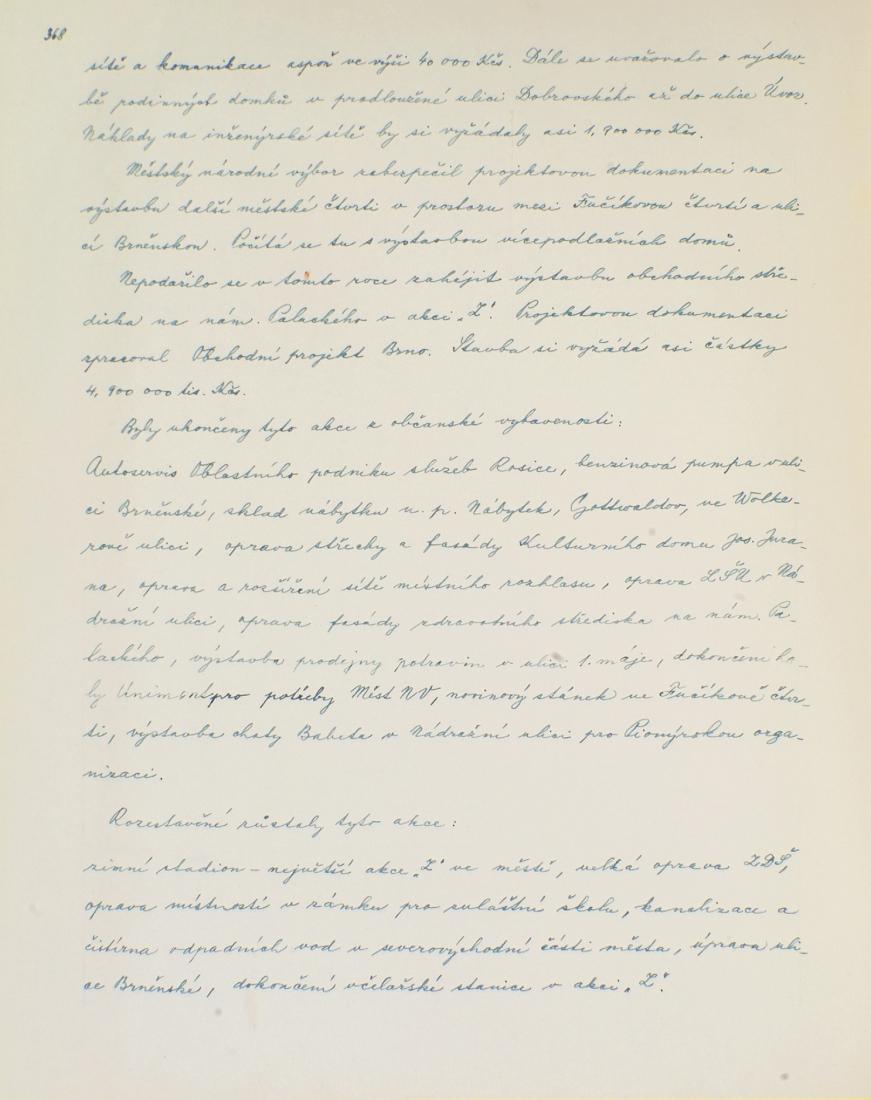 368
sítě a komunikace aspoň ve výši 40 000 Kčs. Dále se uvažovalo o výstav-
bě rodinných domků v prodloužené ulici Dobrovského až do ulice Úvoz.
Náklady na inženýrské sítě by si vyžádaly asi 1, 900 000 Kčs.
Městský národní výbor zabezpečil projektovou dokumentaci na
výstavbu další městské čtvrti v prostoru mezi Fučíkovou čtvrtí a uli-
cí Brněnskou. Počítá se tu s výstavbou vícepodlažních domů.
Nepodařilo se v tomto roce zahájit výstavbu obchodního stře-
diska na nám. Palackého v akci „Z". Projektovou dokumentaci
zpracoval Obchodní projekt Brno. Stavba si vyžádá asi částky
4, 900 000 tis. Kčs.
Byly ukončeny tyto akce z občanské vybavenosti:
Autoservis Oblastního podniku služeb Rosice, benzinová pumpa v uli-
ci Brněnské, sklad nábytku n. p. Nábytek, Gottwaldov, ve Wolke-
rově ulici, oprava střechy a fasády Kulturního domu Jos. Jura-
na, oprava a rozšíření sítě místního rozhlasu, oprava LŠU v Ná-
dražní ulici, oprava fasády zdravotního střediska na nám. Pa-
lackého, výstavba prodejny potravin v ulici 1. máje, dokončení ha-
ly Unimont pro potřeby Měst NV, novinový stánek ve Fučíkově čtvr-
ti, výstavba chaty Babeta v Nádražní ulici pro Pionýrskou orga-
nizaci.
Rozestavěné zůstaly tyto akce:
zimní stadion – největší akce „Z" ve městě, velká oprava ZDŠ,
oprava místností v zámku pro zvláštní školu, kanalizace a
čistírna odpadních vod v severovýchodní části města, úprava uli-
ce Brněnské, dokončení včelařské stanice v akci „Z".